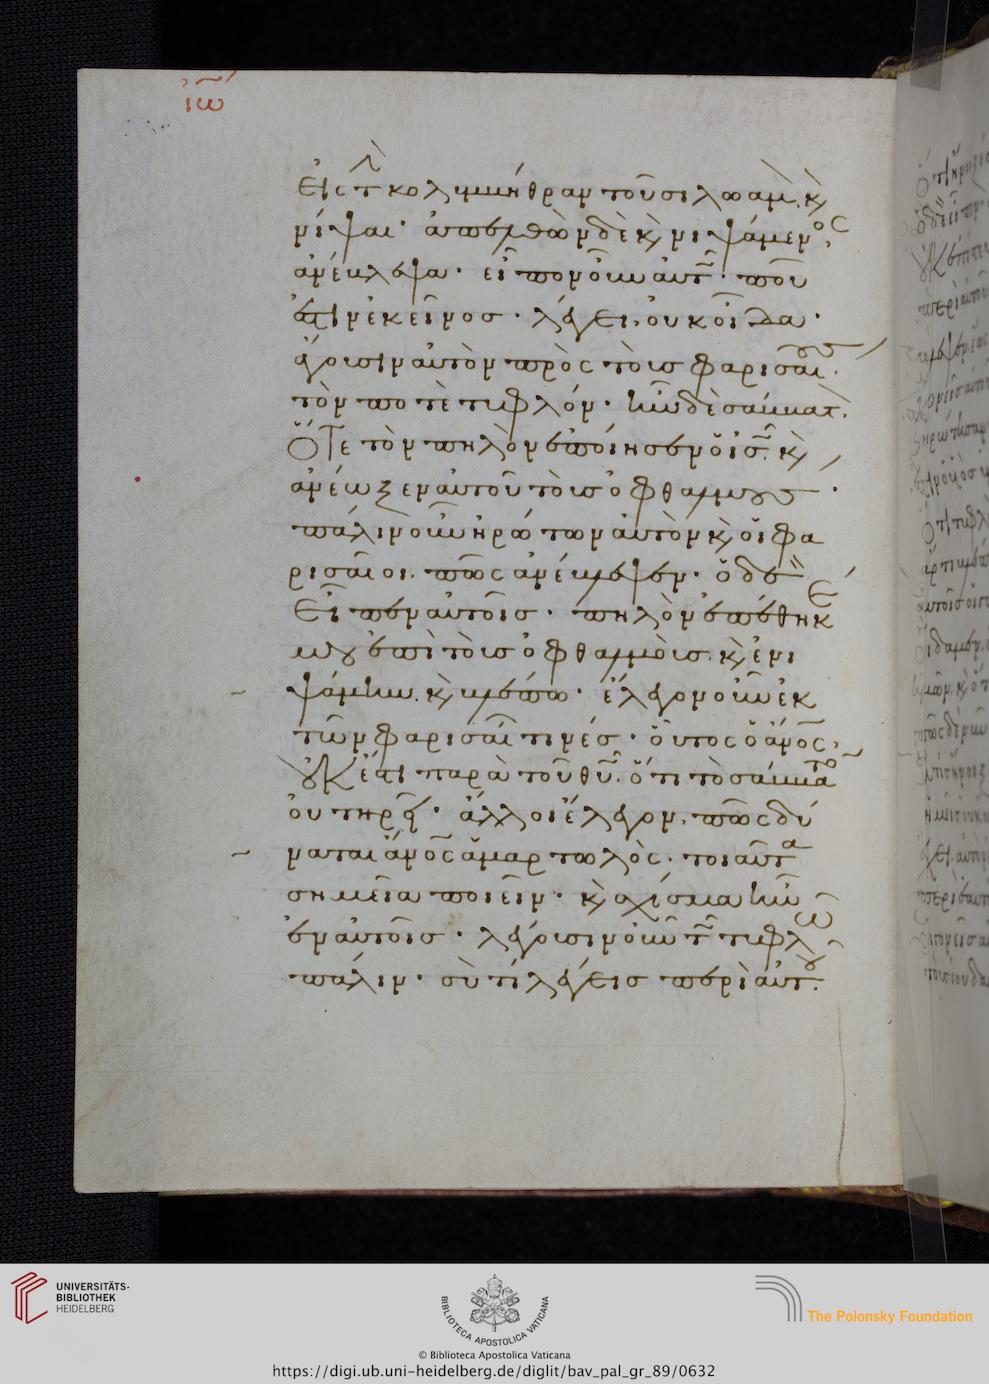 ἰω
εἰς τὴν κολυμβήθραν τοῦ σιλωάμ. κ
νίψαι· ἀπελθὼν δὲ κ νιψάμενος,
ἀνέβλεψα· εἶπον οὖν αὐτῶ· ποῦ
ἐστιν ἐκεῖνος· λέγει, οὐκ οἶδα·
ἄγουσιν αὐτὸν πρὸς τοὺς φαρισαίους.
τόν ποτὲ τυφλόν· ἦν δὲ σάββατον,
ὅτε τὸν πηλὸν ἐποίησεν ὁ ἰς. κ
ἀνέωξεν αὐτοῦ τοὺς ὀφθαλμούς·
πάλιν οὖν ἠρώτων αὐτὸν κ οἱ φα
ρισαῖοι. πῶς ἀνέβλεψεν· ὁ δὲ
εἶπεν αὐτοῖς· πηλὸν ἐπέθηκέ
μου ἐπὶ τοὺς ὀφθαλμοὺς. κ ἐνι
ψάμην. κ βλέπω· ἔλεγον οὖν ἐκ
τῶν φαρισαίων τινές· οὗτος ὁ ἄνος,
οὐκ ἔστι παρὰ τοῦ θυ. ὅτι τὸ σάββατο
οὐ τηρεῖ· ἄλλοι ἔλεγον, πῶς δύ
ναται ἄνος ἁμαρτωλὸς. τοιαῦτα
σημεῖα ποιεῖν· κ σχίσμα ἦν
ἐν αὐτοῖς· λέγουσιν οὖν τῶ τυφλῶ
πάλιν· σὺ τί λέγεις περὶ αὐτοῦ.
UNIVERSITÄTS-
BIBLIOTHEK
HEIDELBERG
BIBLIOTECA APOSTOLICA VATICANA
© Biblioteca Apostolica Vaticana
The Polonsky Foundation
https://digi.ub.uni-heidelberg.de/diglit/bav_pal_gr_89/0632